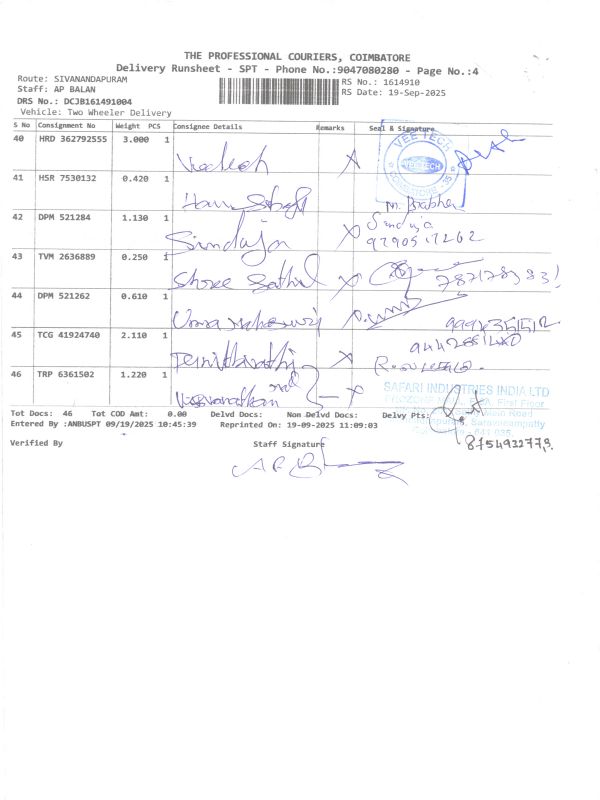 THE PROFESSIONAL COURIERS, COIMBATORE
Delivery Runsheet - SPT - Phone No.:9047080280 - Page No.:4
Route: SIVANANDAPURAM
RS No.: 1614910
Staff: AP BALAN
RS Date: 19-Sep-2025
DRS No.: DCJB161491004
Vehicle: Two Wheeler Delivery
S No Consignment No Weight PCS Consignee Details Remarks Seal & Signature
40 HRD 362792555 3.000 1
VEE TECH
VEE TECH
COIMBATORE - 35
41 HSR 7530132 0.420 1
M. Prabha
42 DPM 521284 1.130 1 Sindhuja
Sinduja
43 TVM 2636889 0.250 1 Shree
44 DPM 521262 0.610 1 Uma
45 TCG 41924740 2.110 1
46 TRP 6361502 1.220 1 Viswanathan
SAFARI INDUSTRIES INDIA LTD
First Floor
Main Road
Saravanampatty
641 035
8754932773
Tot Docs: 46 Tot COD Amt: 0.00 Delvd Docs: Non Delvd Docs: Delvy Pts:
Entered By :ANBUSPT 09/19/2025 10:45:39 Reprinted On: 19-09-2025 11:09:03
Verified By Staff Signature